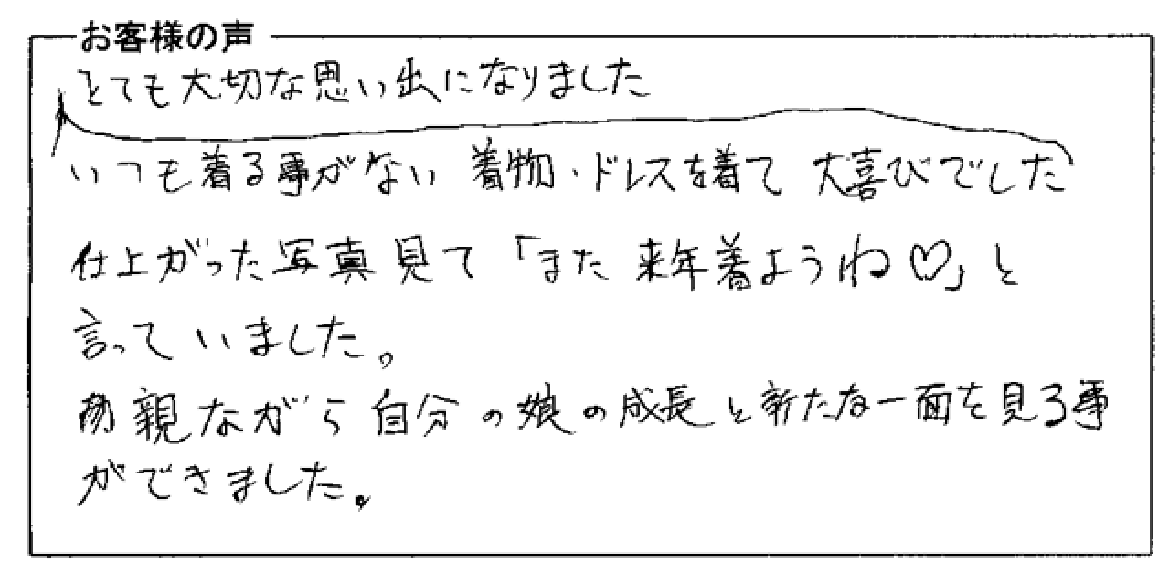 お客様の声
とても大切な思い出になりました
いつも着る事がない 着物・ドレスを着て 大喜びでした
仕上がった写真見て「また 来年着ようね♡」と
言っていました。
親ながら自分の娘の成長と新たな一面を見る事
ができました。